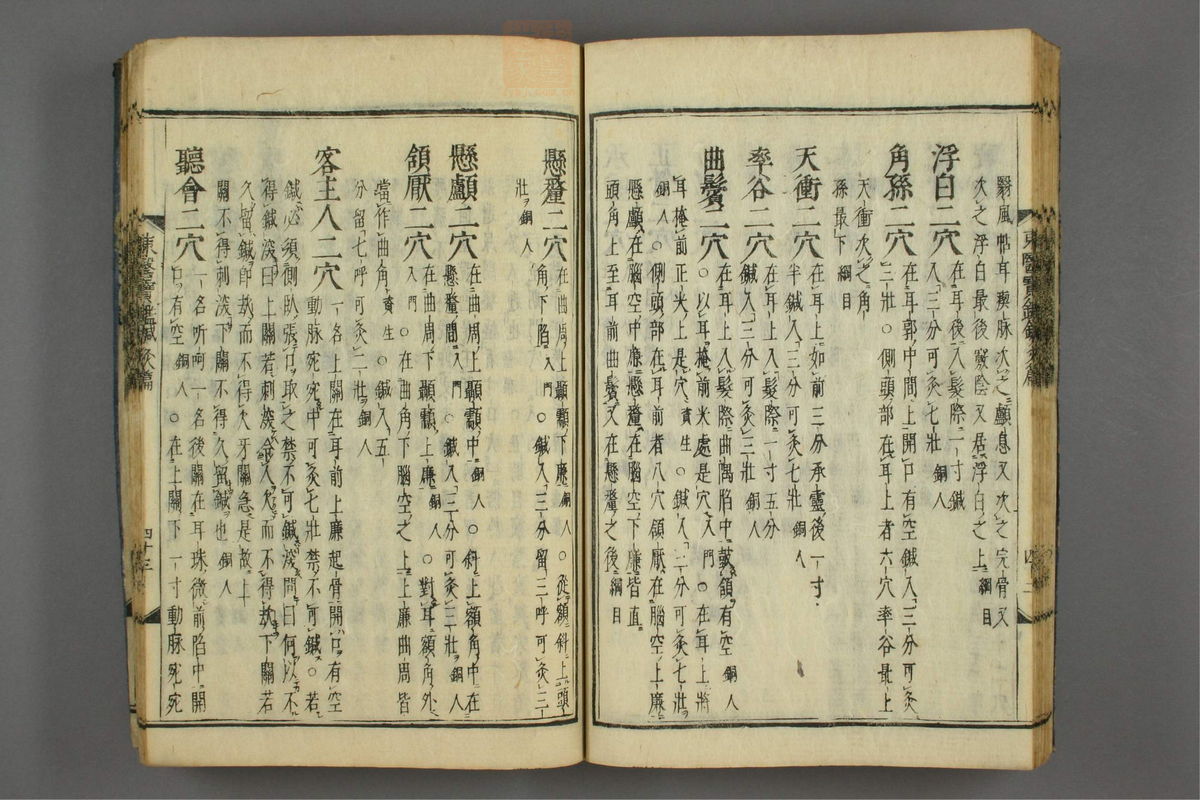 翳風帖耳瘈脉次之顱息又次之完骨又
次之浮白最後竅陰又居浮白之上綱目
浮白二穴在耳後入髮際一寸鍼
入三分可灸七壯銅人
角孫二穴在耳郭中間上開口有空鍼入三分可灸
三壯○側頭部在耳上者六穴率谷最上
天衝次之角
孫最下綱目
天衝二穴在耳上如前三分承靈後一寸
半鍼入三分可灸七壯銅人
率谷二穴在耳上入髮際一寸五分
鍼入三分可灸三壯銅人
曲鬢二穴在耳上入髮際曲隅陷中鼓頷有空銅人
○以耳掩前尖處是穴入門○在耳上將
耳掩前正尖上是穴資生○鍼入二分可灸七壯
銅人○側頭部在耳前者八穴頷厭在腦空上廉
懸顱在腦空中廉懸釐在腦空下廉皆直
頭角上至耳前曲鬢又在懸釐之後綱目
懸釐二穴在曲周上顳顬下廉銅人○從額斜上頭
角下陷入門○鍼入三分留三呼可灸三
壯銅人
懸顱二穴在曲周上顳顬中銅人○斜上額角中在
懸釐間入門○鍼入三分可灸三壯銅人
頷厭二穴在曲周下顳顬上廉銅人○對耳額角外
入門○在曲角下腦空之上上廉曲周皆
當作曲角資生○鍼入五
分留七呼可灸二壯銅人
客主人二穴一名上關在耳前上廉起骨開口有空
動脉宛宛中可灸七壯禁不可鍼○若
鍼必須側臥張口取之禁不可鍼深問曰何以不
得鍼深曰上關若刺深令人欠而不得㰦下關若
久留鍼卽㰦而不得欠牙關急是故上
關不得刺深下關不得久留鍼也銅人
聽會二穴一名听呵一名後關在耳珠微前陷中開
口有空銅人○在上關下一寸動脉宛宛
東醫寶鑑鍼灸篇
四十三